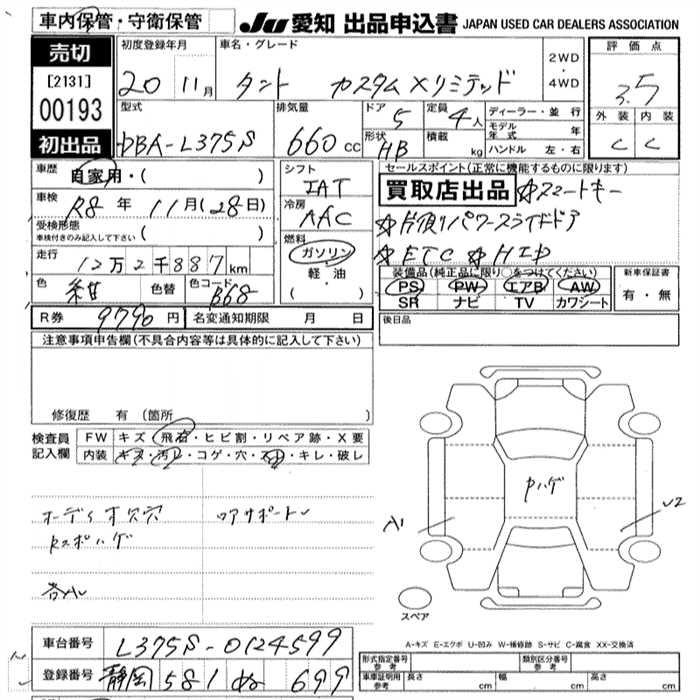 車内保管・守衛保管
JU 愛知 出品申込書 JAPAN USED CAR DEALERS ASSOCIATION
売切
[2131]
00193
初出品
初度登録年月
20 11月
車名・グレード
タント カスタムXリミテッド
2WD
・
4WD
評価点
3.5
外装 内装
C C
型式
DBA-L375S
排気量
660 cc
ドア 5
形状 HB
定員 4人
積載 kg
ディーラー・並行
モデル年式 年
ハンドル 左・右
車歴
自家用・( )
車検
R8年 11月(28日)
受検形態
車検付きのみ記入して下さい ( )
走行
12万2千887km
色 紺 色替 色コード B68
シフト
IAT
冷房
AAC
燃料
ガソリン
軽・油
( ・ )
セールスポイント(正常に機能するものに限ります)
買取店出品 ☆スマートキー
☆片側パワースライドドア
☆ETC ☆HID
装備品(純正品に限り○をつけてください)
PS PW エアB AW
SR ナビ TV カワシート
新車保証書
有・無
R券 9790円 名変通知期限 月 日
後日品
注意事項申告欄(不具合内容等は具体的に記入して下さい)
修復歴 有(箇所 )
検査員
記入欄
FW キズ・飛石・ヒビ割・リペア跡・X要
内装 キズ・汚レ・コゲ・穴・スレ・キレ・破レ
オーディオ穴
Rスポハゲ
ロアサポート
Pハゲ
A1
U2
スペア
A-キズ E-エクボ U-凹み W-補修跡 S-サビ C-腐食 XX-交換済
車台番号 L375S-0124599
登録番号 静岡 581 ぬ 699
形式指定番号
参考
類別区分番号
参考
車車証明用
参考
長さ cm 幅 cm 高さ cm